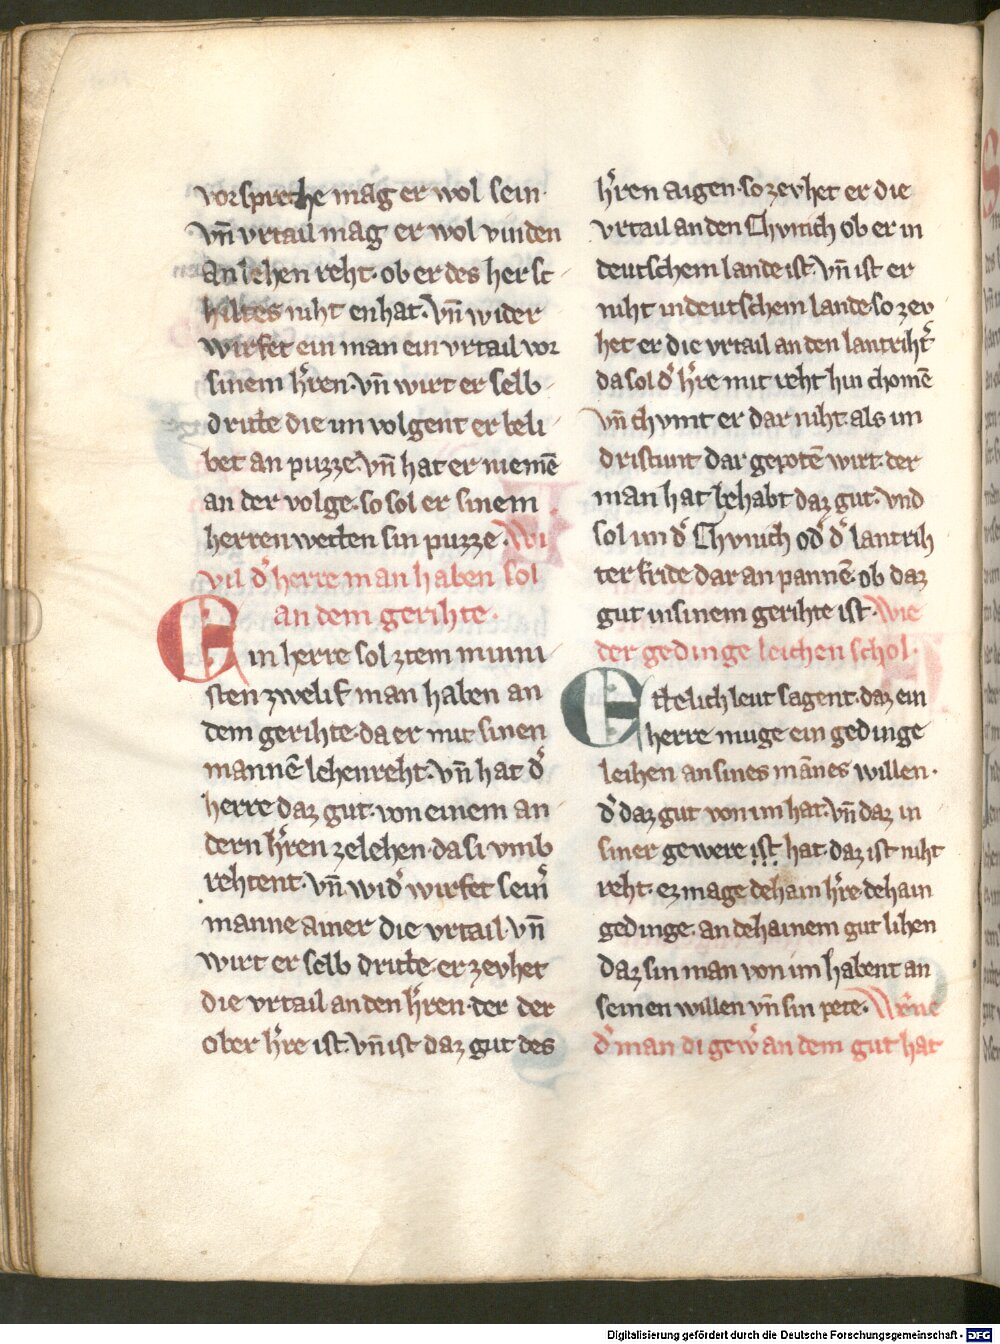 vorspreche mag er wol sein·
vn̄ vrtail mag er wol vinden
an lehen reht· ob er des hersc
hiltes niht enhat· Vn̄ wider
wirfet ein man ein vrtail vor
sinem h̄ren· vn̄ wirt er selb
dritte die im volgent er beli
bet an puzze· Vn̄ hat er niemē
an der volge· so sol er sinem
herren wetten sin puzze· Wi
vil d̄ herre man haben sol
an dem gerihte·
Ein herre sol ztem minni
sten zwelif man haben an
dem gerihte· da er mit sinen
mannē lehenreht· Vn̄ hat d̄
herre daz gut· von einem an
dern h̄ren zelehen· da si vmb
rehtent· Vn̄ wid̄ wirfet sein̄
manne ainer die vrtail· Vn̄
wirt er selb dritte· er zevhet
die vrtail an den h̄ren· der der
ober h̄re ist· Vn̄ ist daz gut des
h̄ren aigen· so zevhet er die
vrtail an den Chvnich ob er in
deutschem lande ist· Vn̄ ist er
niht in deutschem lande· so zev
het er die vrtail an den lantriht̄
da sol d̄ h̄re mit reht hin chomē
Vn̄ chvmt er dar niht· als im
dristunt dar gepotē wirt· der
man hat behabt daz gut· Vnd
sol im d̄ Chvnich od̄ d̄ lantrih
ter fride dar an pannē· ob daz
gut in sinem gerihte ist· Wie
der gedinge leichen schol·
Ettelich leut sagent· daz ein
herre muge ein gedinge
leihen an sines mānes willen·
d̄ daz gut von im hat· Vn̄ daz in
siner gewere ist hat· daz ist niht
reht· ez mage dehain h̄re· dehain
gedinge· an dehainem gut lihen
daz sin man von im habent an
seinen willen vn̄ sin pete·
d̄ man di gew̄ an dem gut hat
Digitalisierung gefördert durch die Deutsche Forschungsgemeinschaft - DFG